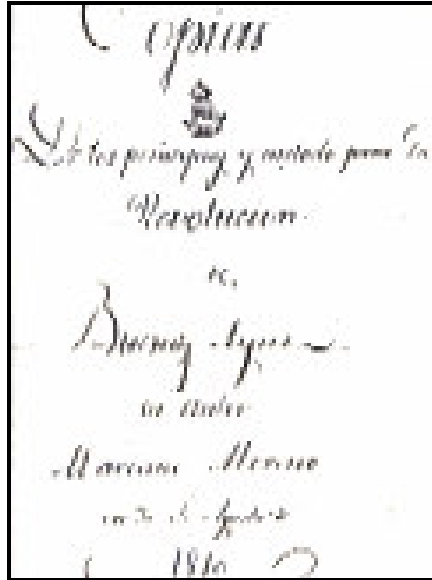 Copias
De los principios y metodo para la
Revolucion
Buenos Ayres
su Autor
Mariano Moreno
en 30 de Agosto de
1810